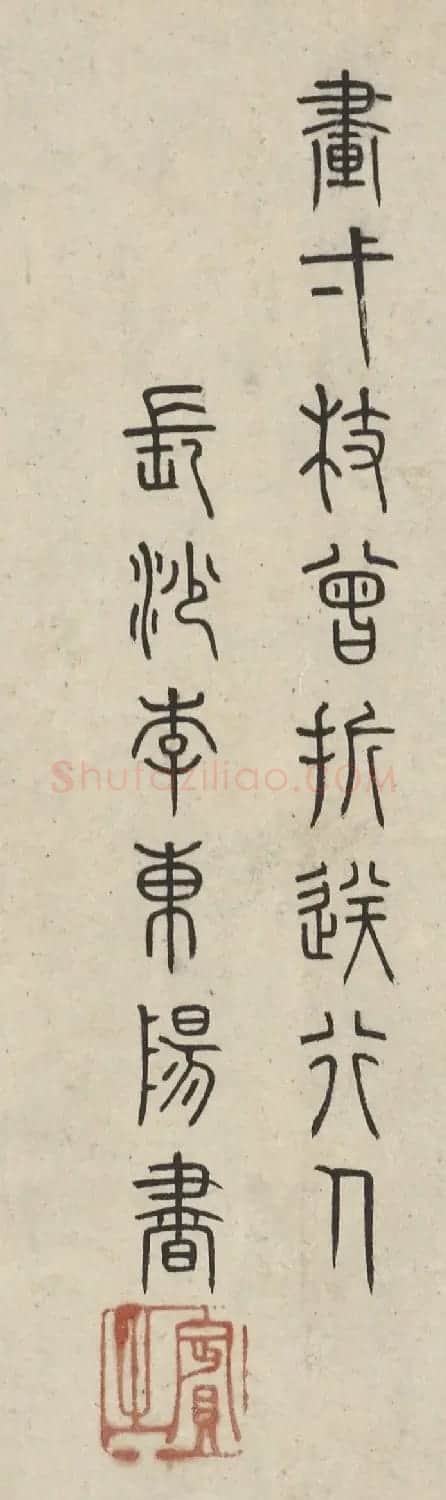 畫弌枝曾折送行人
長沙李東陽書
賓之
Shufaziliao.COM